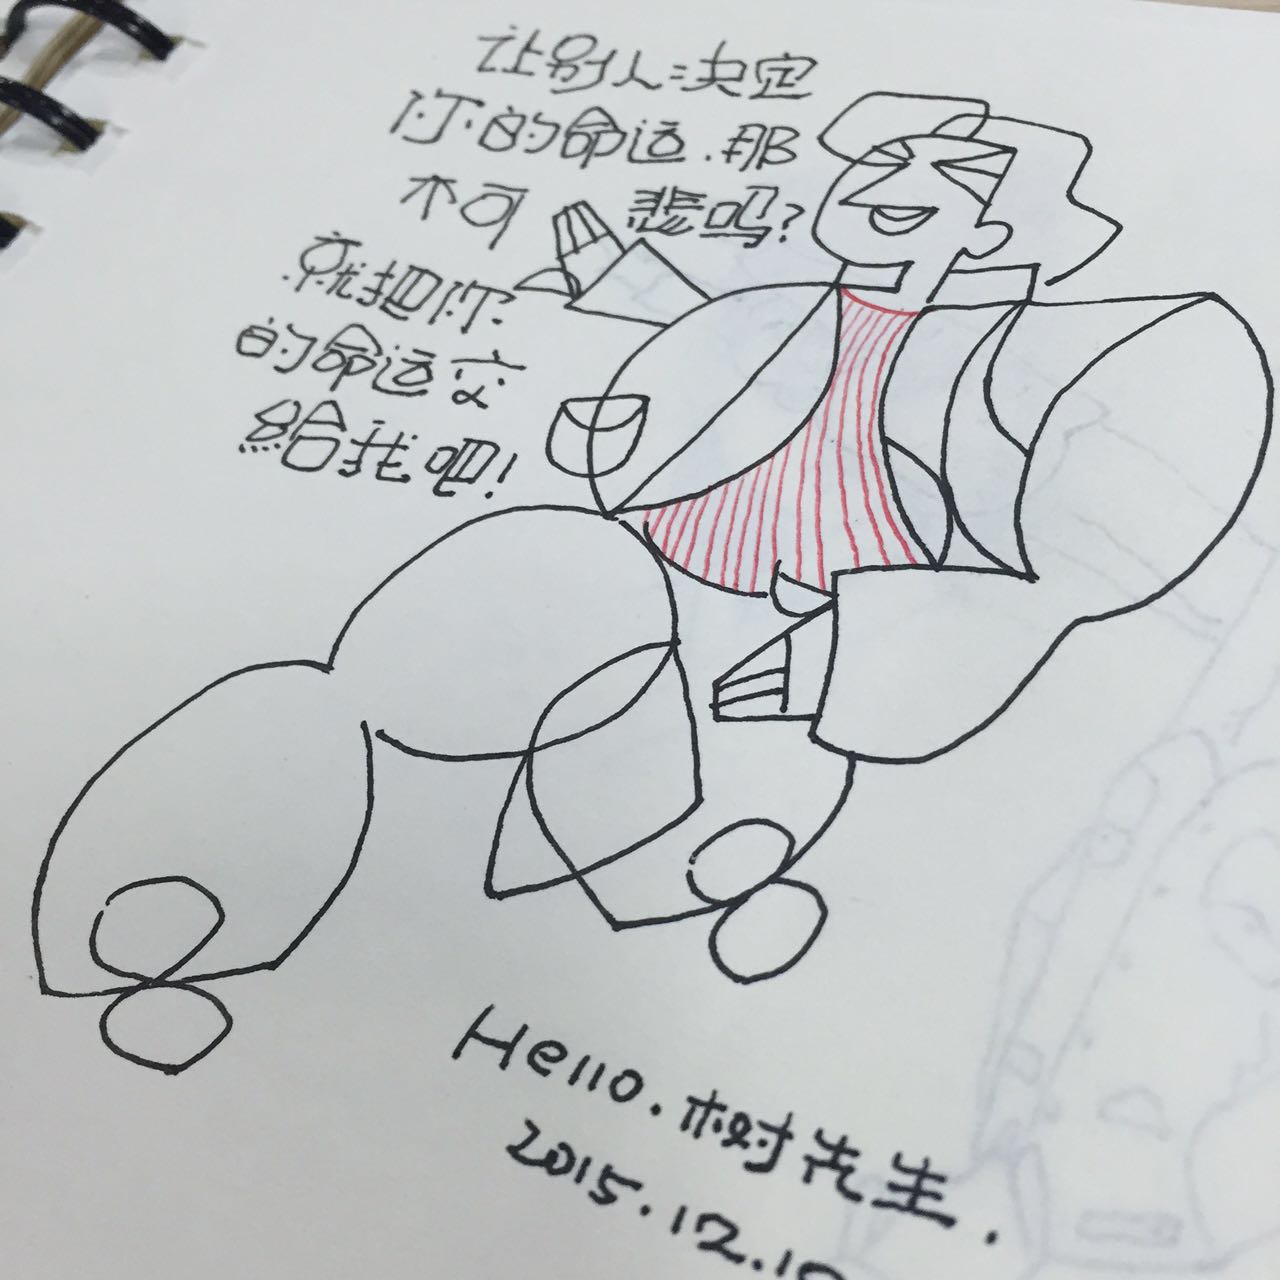 让别人决定
你的命运.那
不可悲吗?
就把你
的命运交
给我吧!
Hello.树先生.
2015.12.10